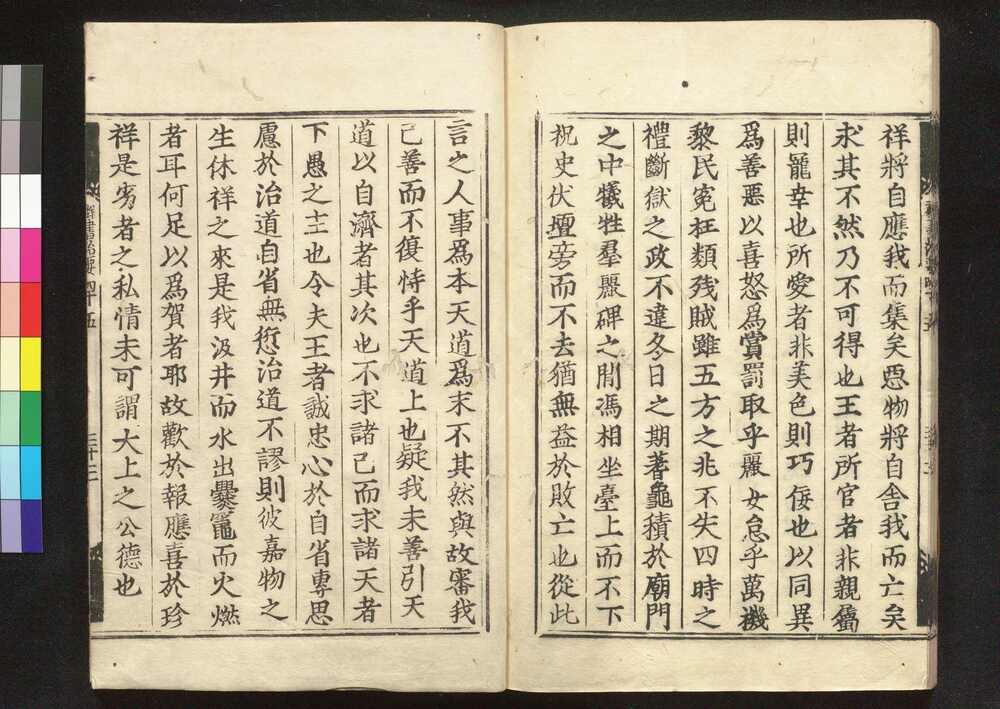 祥將自應我而集矣惡物將自舍我而亡矣
求其不然乃不可得也王者所官者非親屬
則寵幸也所愛者非美色則巧佞也以同異
爲善惡以喜怒爲賞罰取乎麗女怠乎萬機
黎民冤枉類殘賊雖五方之兆不失四時之
禮斷獄之政不違冬日之期蓍龜積於廟門
之中犧牲羣麗碑之間馮相坐臺上而不下
祝史伏壇旁而不去猶無益於敗亡也從此
言之人事爲本天道爲末不其然與故審我
己善而不復恃乎天道上也疑我未善引天
道以自濟者其次也不求諸己而求諸天者
下愚之主也今夫王者誠忠心於自省專思
慮於治道自省無愆治道不謬則彼嘉物之
生休祥之來是我汲井而水出爨竈而火燃
者耳何足以爲賀者耶故歡於報應喜於珍
祥是劣者之私情未可謂大上之公德也
群書治要四十五
三十二